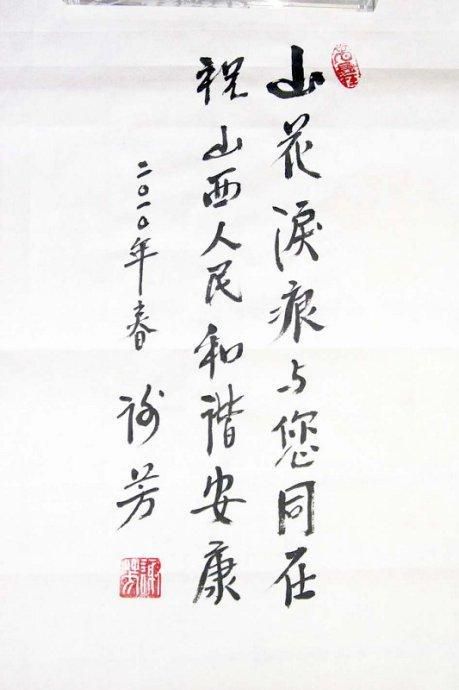 山花淚痕与您同在
祝山西人民和谐安康
二〇一〇年春
谢芳
謝芳